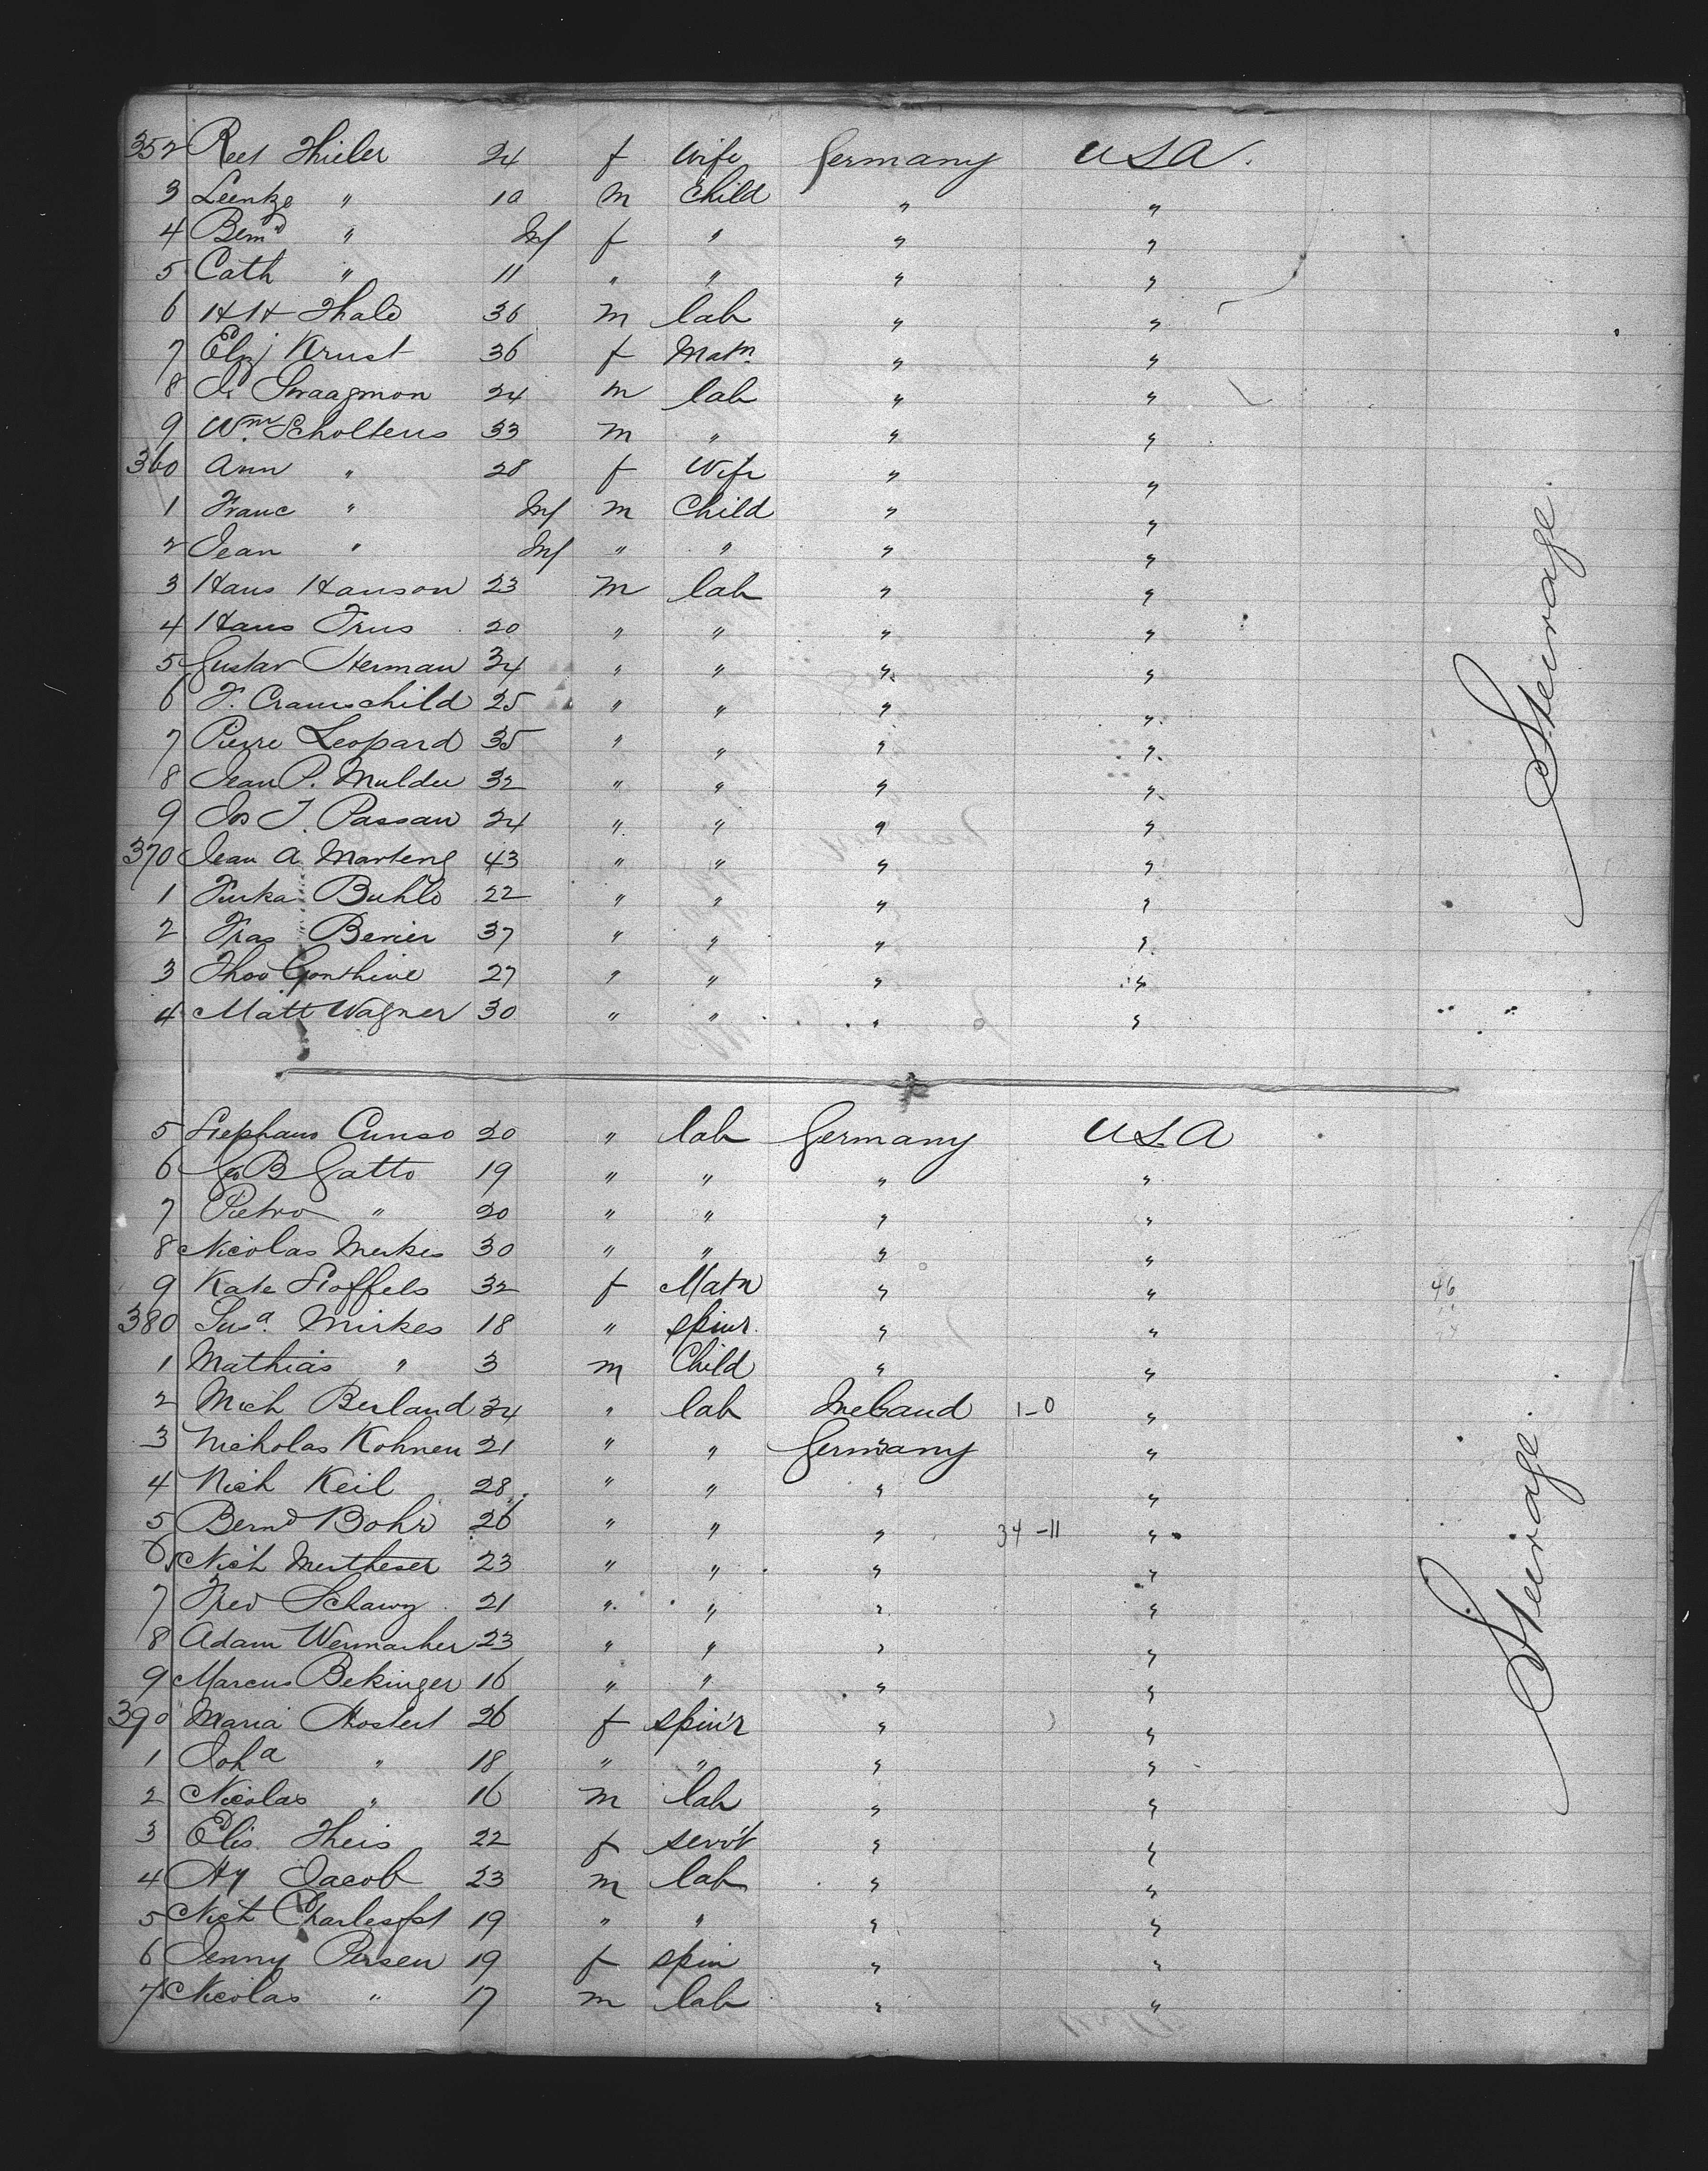 352 Reet Thieler 24 f Wife Germany USA.
3 Leentze " 10 m Child " "
4 Bernd " Inf f " " "
5 Cath " 11 " " " "
6 H H Thale 36 m lab " "
7 Eliz Krust 36 f Matn " "
8 Swaagmon 24 m lab " "
9 Wm. Scholtens 33 m " " "
360 Ann " 28 f Wife " "
1 Franc " Inf m Child " "
2 Jean " Inf " " " "
3 Hans Hanson 23 m lab " "
4 Hans Frus 20 " " " "
5 Gustav Herman 34 " " " "
6 F. Cramschild 25 " " " "
7 Pierre Leopard 35 " " " "
8 Jean P. Mulder 32 " " " "
9 Jos J. Passau 24 " " " "
370 Jean A. Marteng 43 " " " "
1 Buhlo 22 " " " "
2 Fras Berier 37 " " " "
3 Thos Gonthine 27 " " " "
4 Matt Wagner 30 " " " "
Steirage.
5 Stephano Cunso 20 " lab Germany USA
6 Go B Gatto 19 " " " "
7 Pietro " 20 " " " "
8 Nicolas Merkes 30 " " " "
9 Kate Stoffels 32 f Matn " " 46
380 Susa. Mirkes 18 " spinr. " "
1 Mathias " 3 m Child " "
2 Mich Berland 34 " lab Ireland 1-0 "
3 Nicholas Kohnen 21 " " Germany "
4 Nich Keil 28 " " " "
5 Bernd Bohr 26 " " " 34-11 "
6 Nich Mertheser 23 " " " "
7 Fred Schawz 21 " " " "
8 Adam Wermacher 23 " " " "
9 Marcus Bekinger 16 " " " "
390 Maria Hostert 26 f spin'r " "
1 Joha " 18 " " " "
2 Nicolas " 16 m lab " "
3 Elis. Theis 22 f servt " "
4 Hy Jacob 23 m lab " "
5 Nich 19 " " " "
6 Jenny Persen 19 f spin " "
7 Nicolas " 17 m lab " "
Steirage.